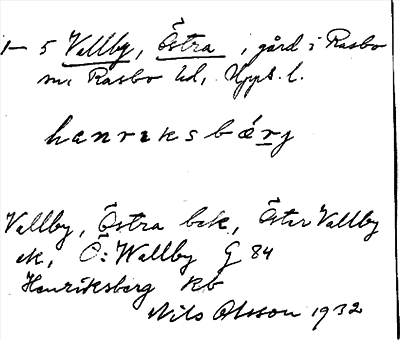 1– 5 Vallby, Östra, gård i Rasbo
sn, Rasbo hd, Upps. l.
hanrıksbǽrj
Vallby, Östra bek, Öster Vallby
ek, Ö: Wallby G 84
Henriksberg kb
Nils Olsson 1932